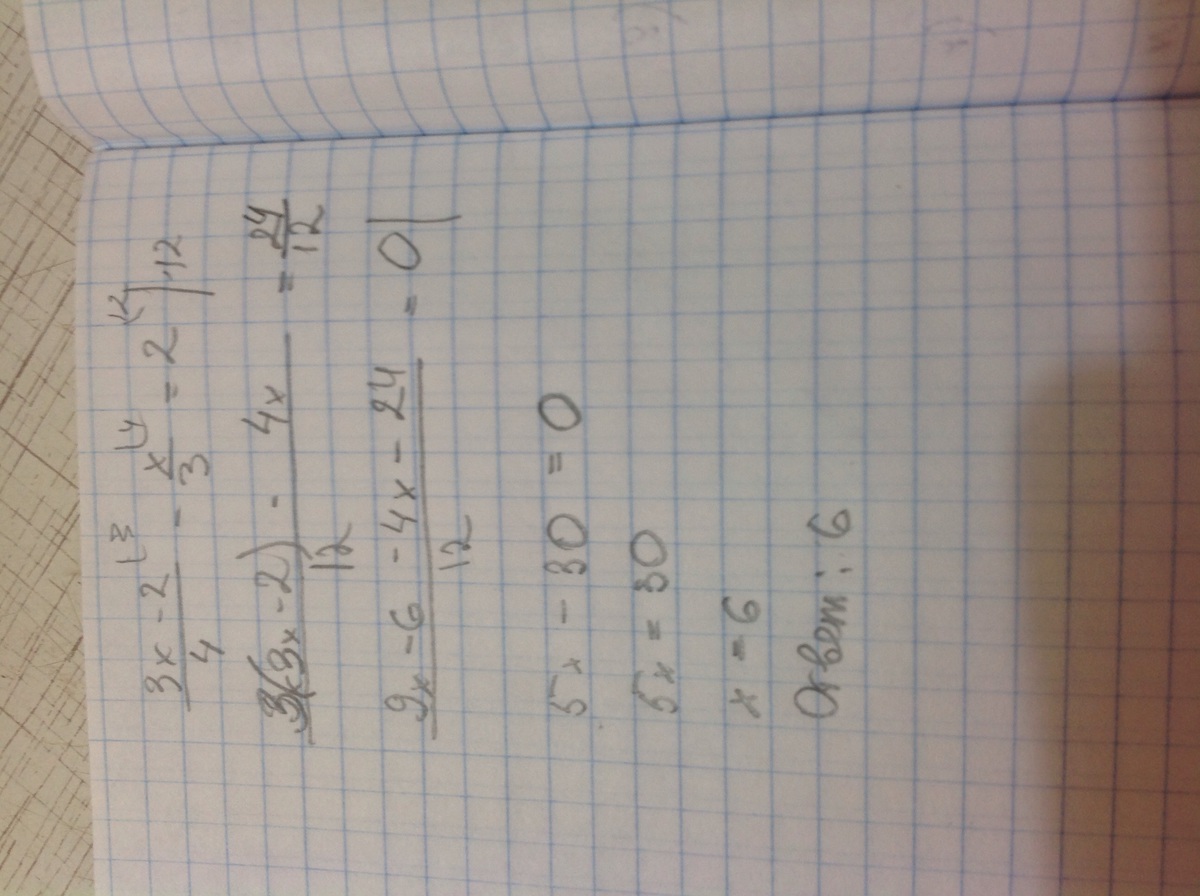 (3x - 2)/4 ⁽³ - x/3 ⁽⁴ = 2 ⁽¹² | · 12
(3(3x - 2) - 4x)/12 = 24/12
(9x - 6 - 4x - 24)/12 = 0 |
5x - 30 = 0
5x = 30
x = 6
Ответ: 6